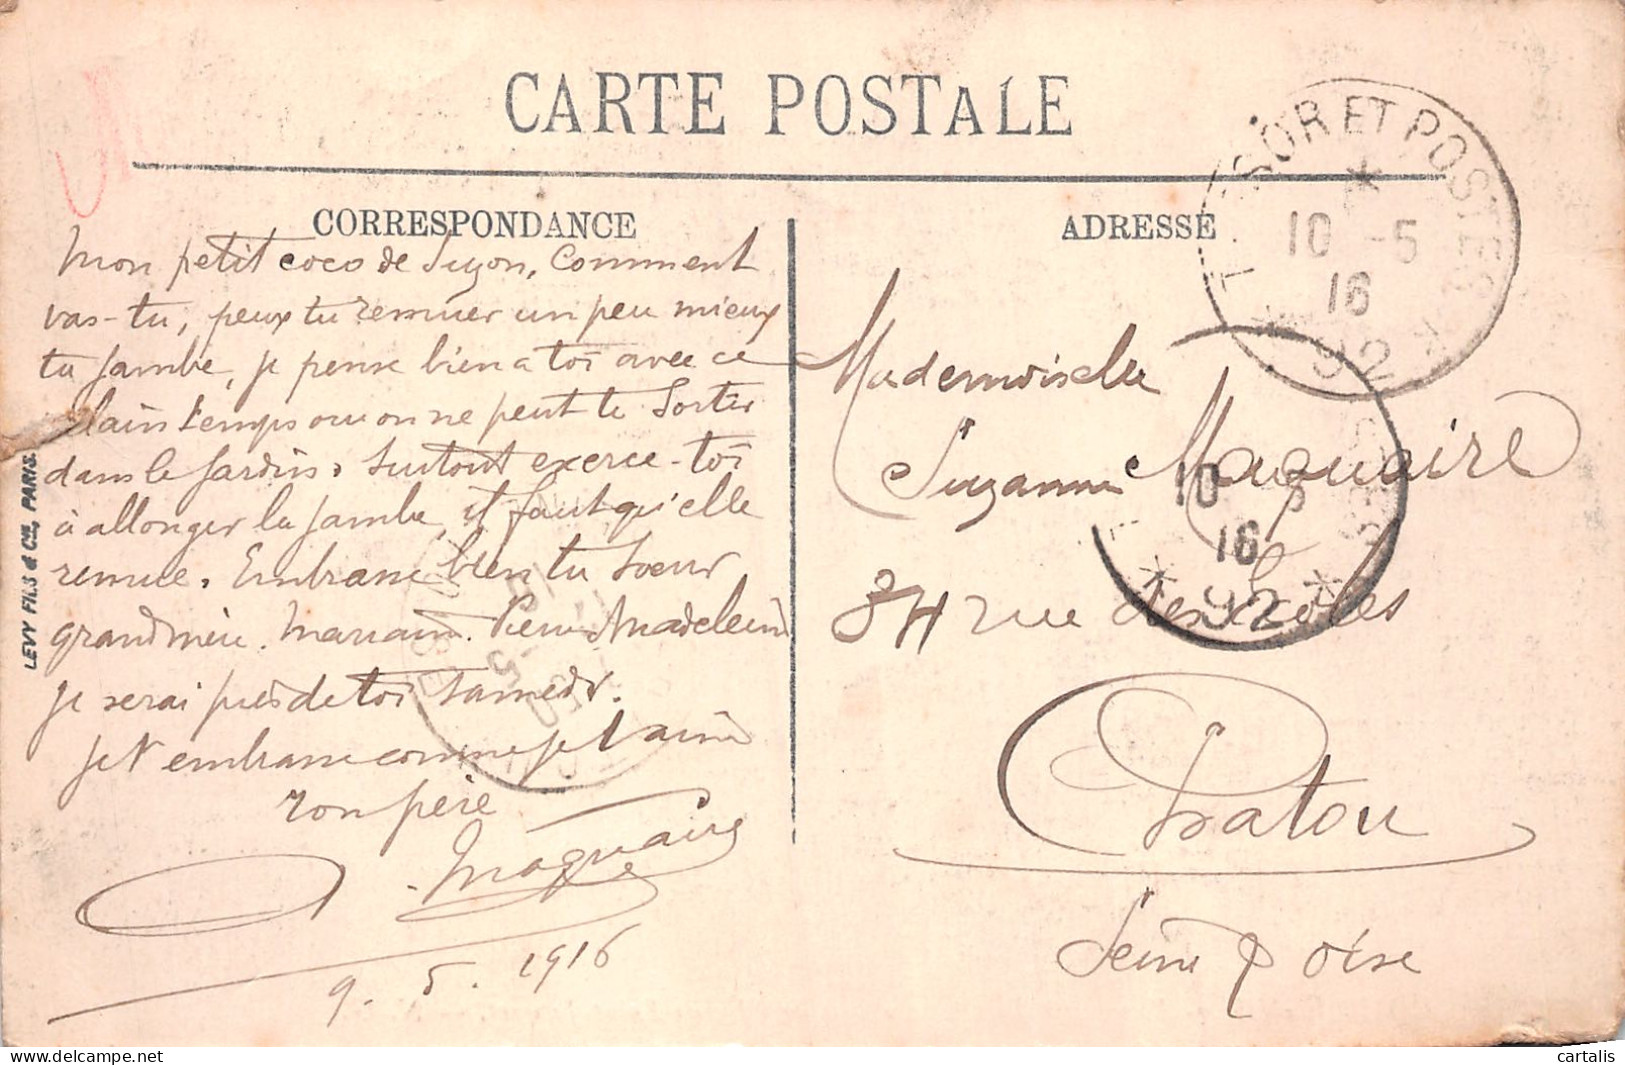 CARTE POSTALE
CORRESPONDANCE
Mon petit coco de Suzon, Comment
vas-tu, peux tu remuer un peu mieux
ta jambe, je pense bien a toi avec ce
vilain temps ou on ne peut te sortir
dans le jardin, surtout exerce-toi
à allonger la jambe, il faut qu'elle
remue. Embrasse bien ta soeur
grandmère. Maman. Pierre Madeleine
je serai près de toi samedi.
Je t'embrasse comme je t'aime
ton père
Maquaire
9. 5. 1916
ADRESSE
Mademoiselle
Suzanne Maquaire
84 rue des Ecoles
Chatou
Seine & Oise
TRESOR ET POSTES
10 -5
16
92
10 5
16
92
LEVY FILS & Cie, PARIS.
cartalis